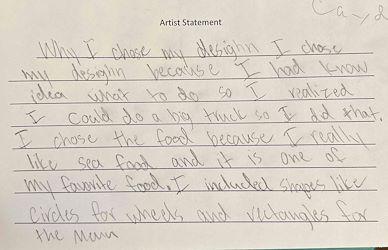 Artist Statement
Why I chose my desighn I chose
my desighn because I had know
idea what to do so I realized
I could do a big truck so I did that.
I chose the food because I really
like sea food and it is one of
my favorite food. I included shapes like
circles for wheels and rectangles for
the main